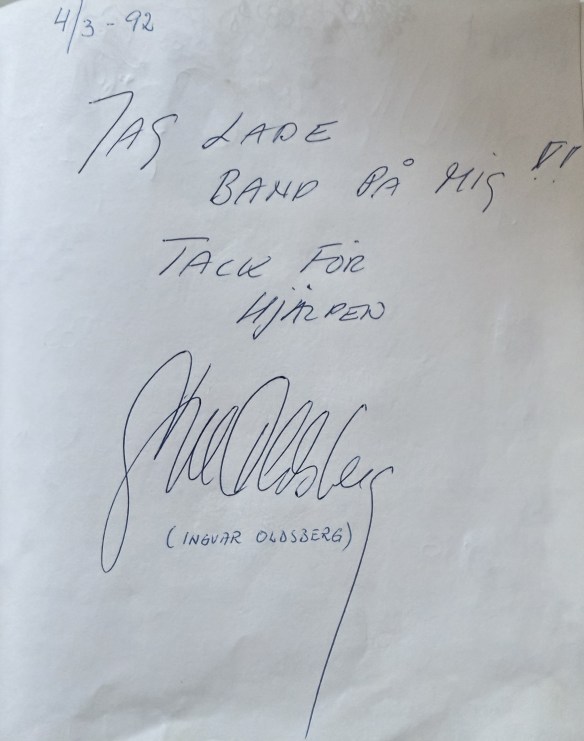 4/3-92
JAG LADE
BAND PÅ MIG!!
TACK FÖR
HJÄLPEN
Ingvar Oldsberg
(INGVAR OLDSBERG)